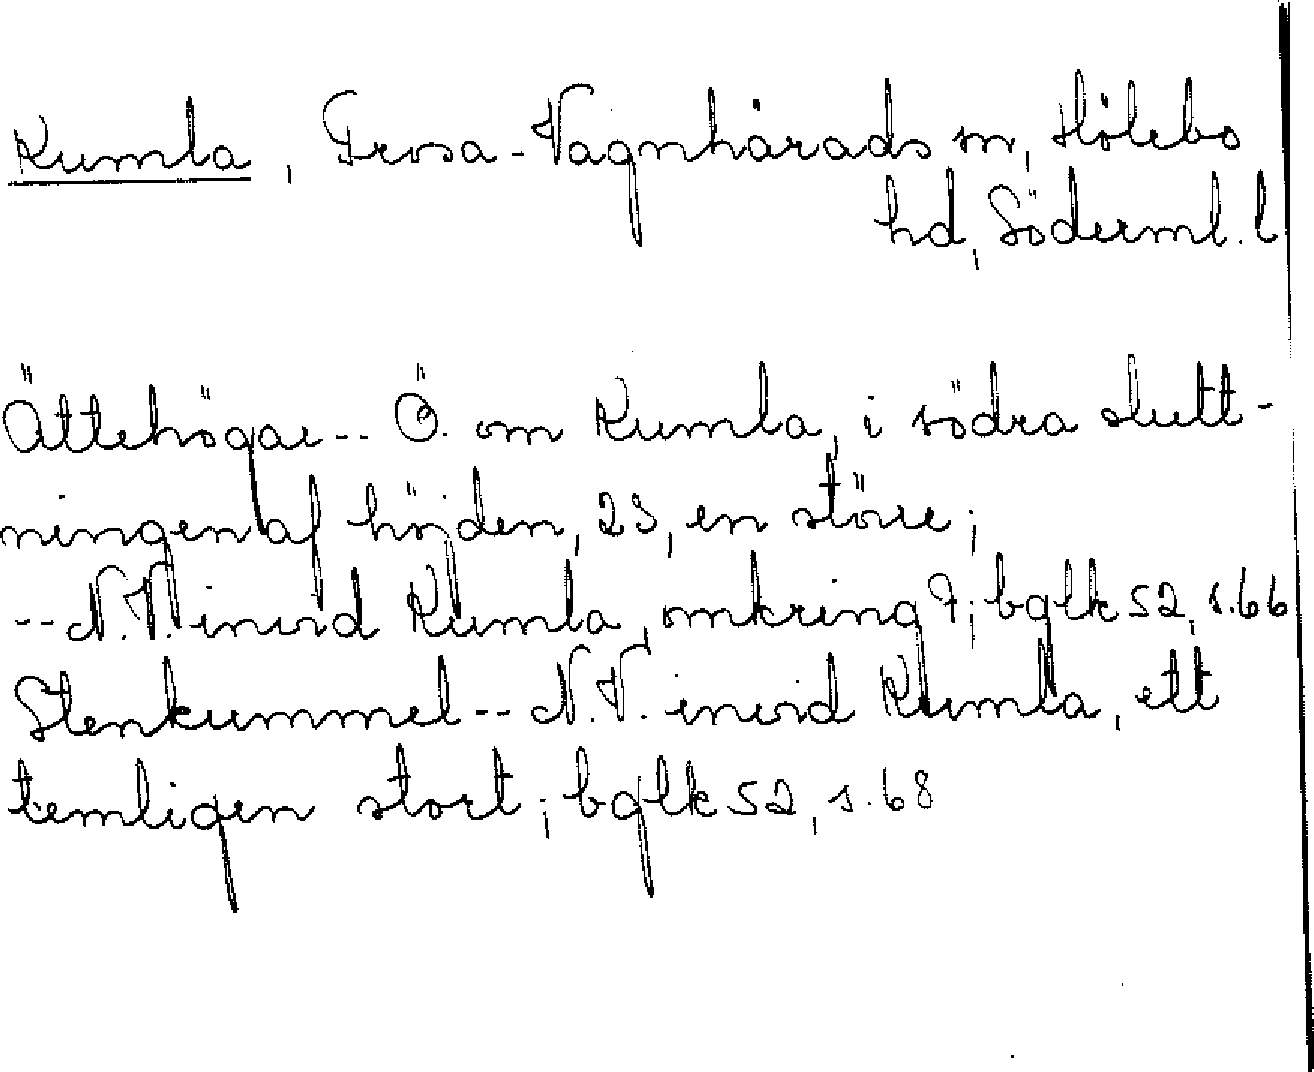 Kumla, Trosa-Vagnhärads sn, Hölebo
hd, Söderml. l
Ättehögar -- Ö. om Kumla, i södra slutt-
ningen af höjden, 25, en större;
-- N.V. invid Kumla, omkring 7; bglk 52, s. 66
Stenkummel -- N.V. invid Kumla, ett
temligen stort; bglk 52, s. 68